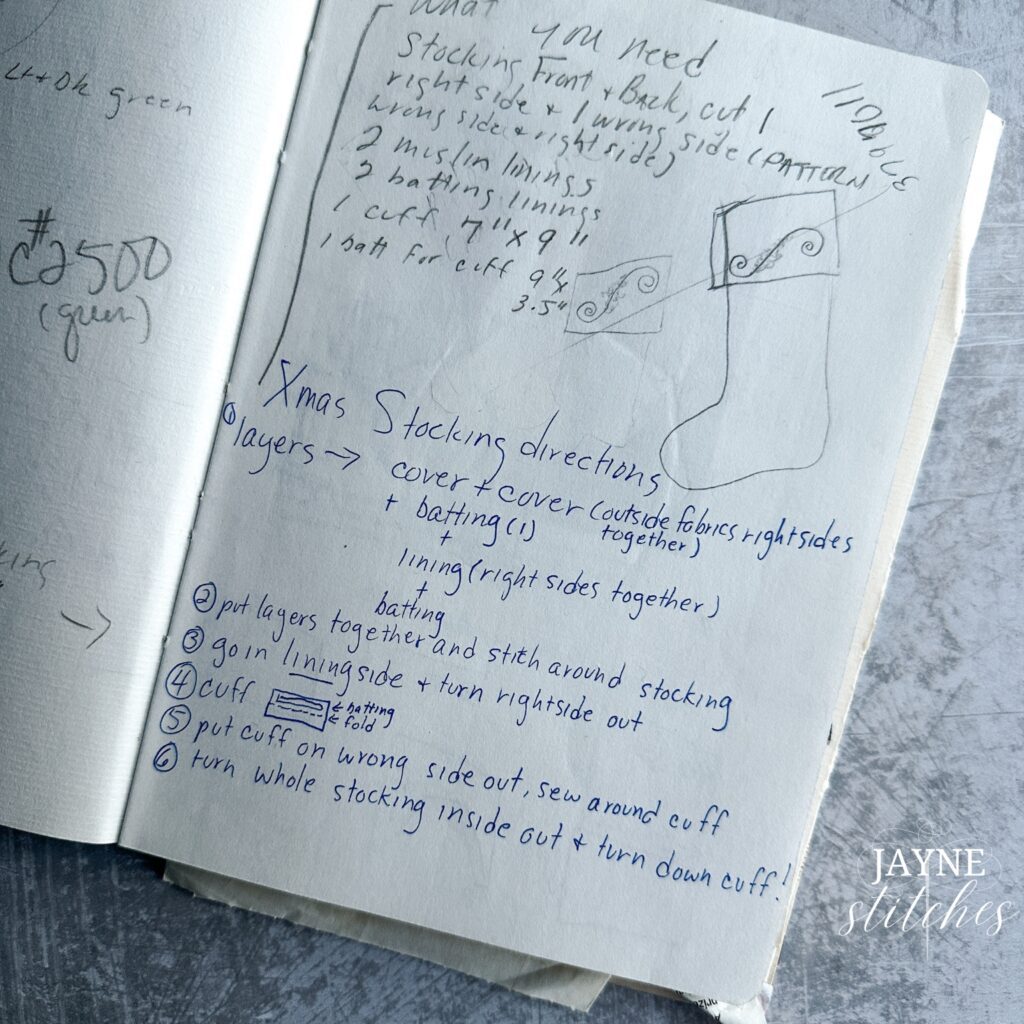 Lt + Dk green
#
C2500
(green)
What
you need
Stocking Front + Back, cut 1
right side + 1 wrong side (PATTERN
wrong side + right side)
2 muslin linings
2 batting linings
1 cuff 7"x 9"
1 batt for cuff 9"x
3.5"
Xmas Stocking directions
① layers → cover + cover (outside fabrics right sides
together)
+ batting (1)
+
lining (right sides together)
+
batting
② put layers together and stith around stocking
③ go in lining side + turn rightside out
④ cuff ← batting
← fold
⑤ put cuff on wrong side out, sew around cuff
⑥ turn whole stocking inside out + turn down cuff!
JAYNE
stitches